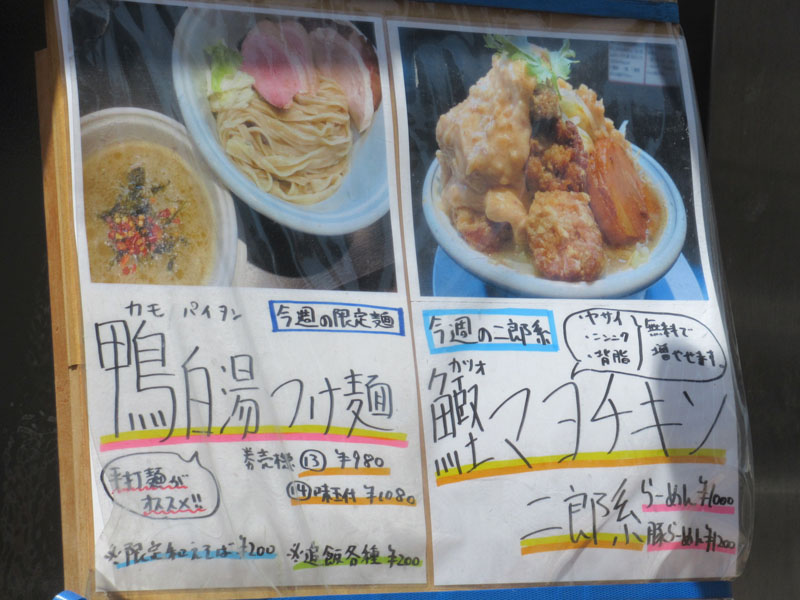 カモ パイタン
今週の限定麺
鴨白湯つけ麺
手打麺が
オススメ!!
券売機 ⑬ ¥980
⑭味玉付 ¥1080
※限定和えそば¥200
※追飯各種 ¥200
今週の二郎系
・ヤサイ
・ニンニク
・背脂
無料で
増やせます。
カツオ
鰹マヨチキン
二郎系
らーめん¥1000
豚らーめん¥1200